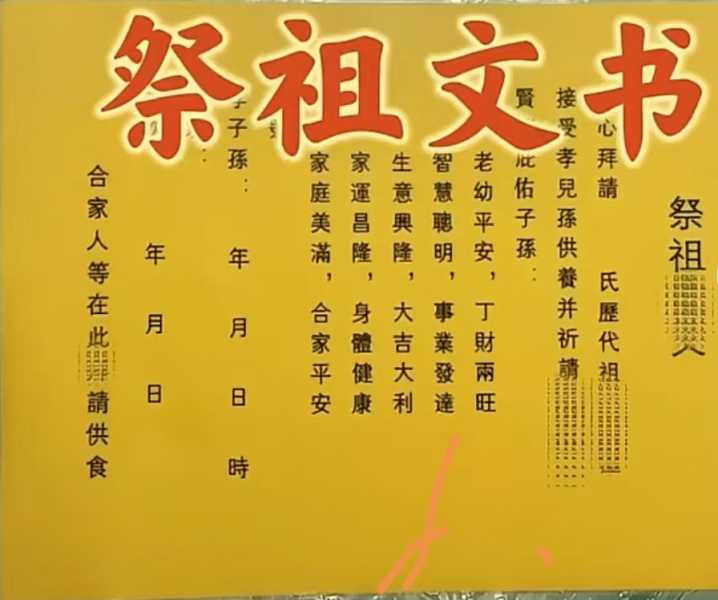 祭祖文书
祭祖文
心拜請 氏歷代祖
接受孝兒孫供養并祈請
賢 庇佑子孫：
老幼平安，丁財兩旺
智慧聰明，事業發達
生意興隆，大吉大利
家運昌隆，身體健康
家庭美滿，合家平安
子孫： 年 月 日 時
年 月 日
合家人等在此拜請供食